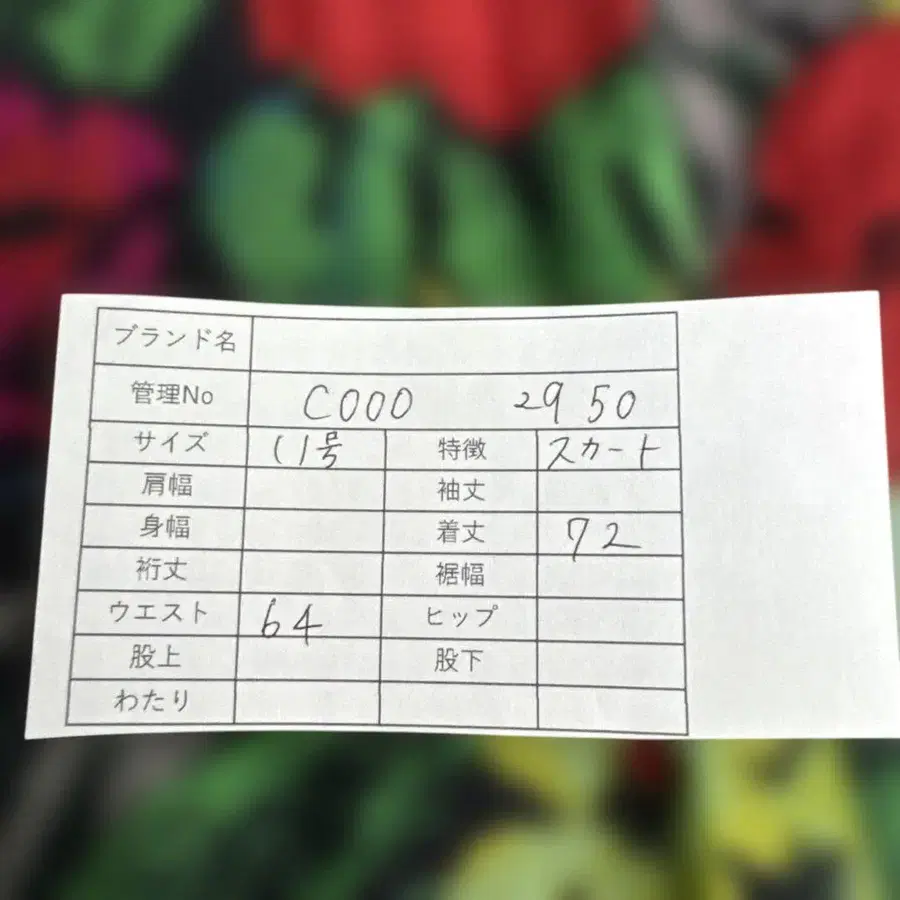 ブランド名
管理No C000 2950
サイズ 11号 特徴 スカート
肩幅 袖丈
身幅 着丈 72
裄丈 裾幅
ウエスト 64 ヒップ
股上 股下
わたり